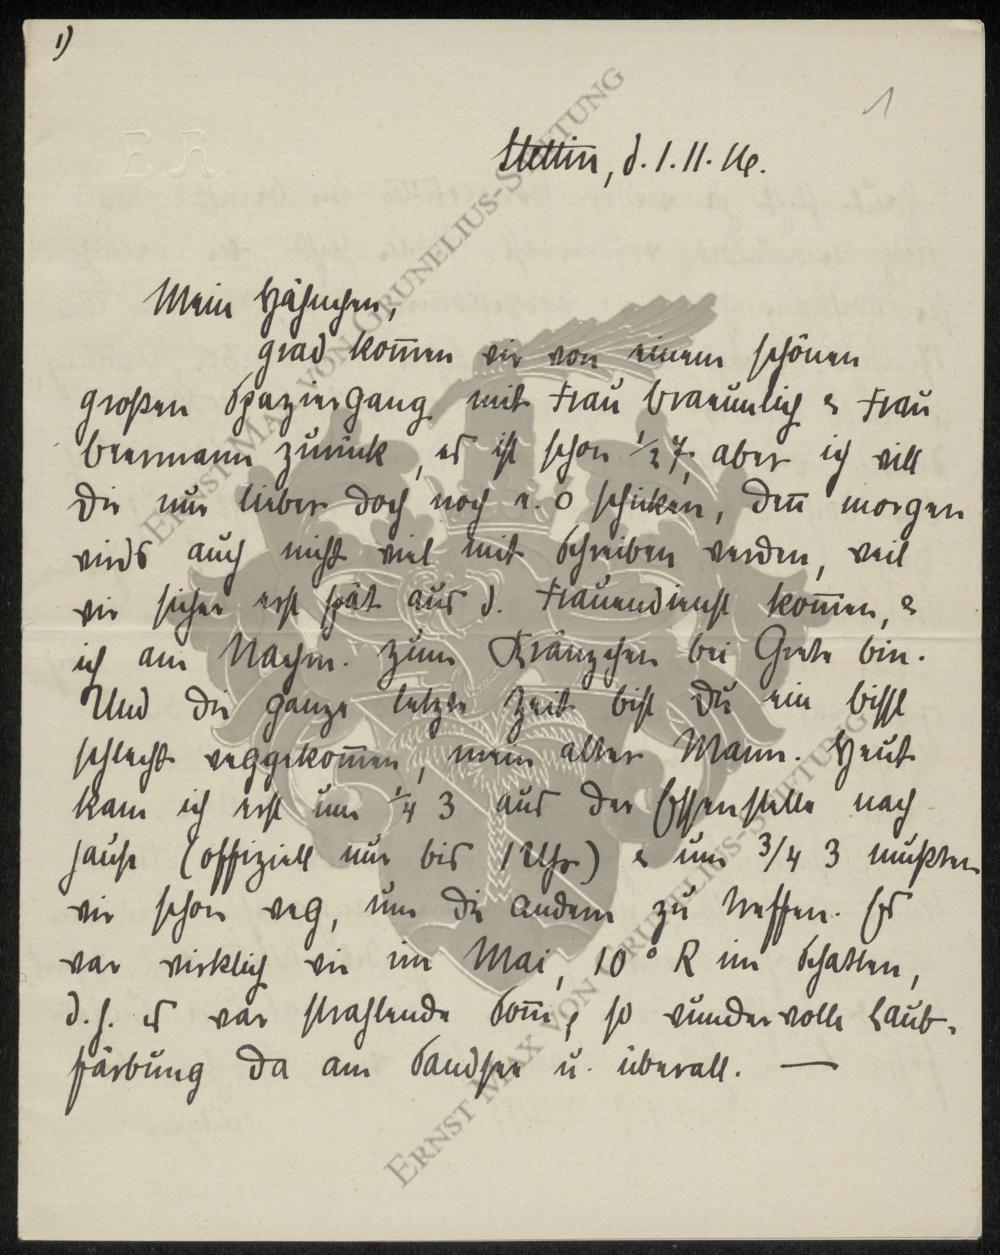 1)
1
Stettin, d. 1.11.16.
E.R.
Mein Hähnchen,
grad kom̅en wir von einem schönen
großen Spaziergang mit Frau Braeunlich & Frau
Biermann zurück, es ist schon ½ 7, aber ich will
Dir nur lieber doch noch e. O schicken, den̅ morgen
wirds auch nicht viel mit Schreiben werden, weil
wir sicher erst spät aus d. Frauendienst kom̅en, &
ich am Nachm. zum Kränzchen bei Grete bin.
Und die ganze letzte Zeit bist Du ein bissl
schlecht weggekom̅en, mein alter Mann. Heut
kam ich erst um ¼ 3 aus der Essenstelle nach
Hause (offiziell nur bis 1 Uhr) & um 3/4 3 mußten
wir schon weg, um die andern zu treffen. Es
war wirklich wie im Mai, 10° R im Schatten,
d.h. es war strahlende Son̅e, so wundervolle Laub-
färbung da am Sandsee u. überall. —
ERNST MAX VON GRUNELIUS-STIFTUNG
ERNST MAX VON GRUNELIUS-STIFTUNG